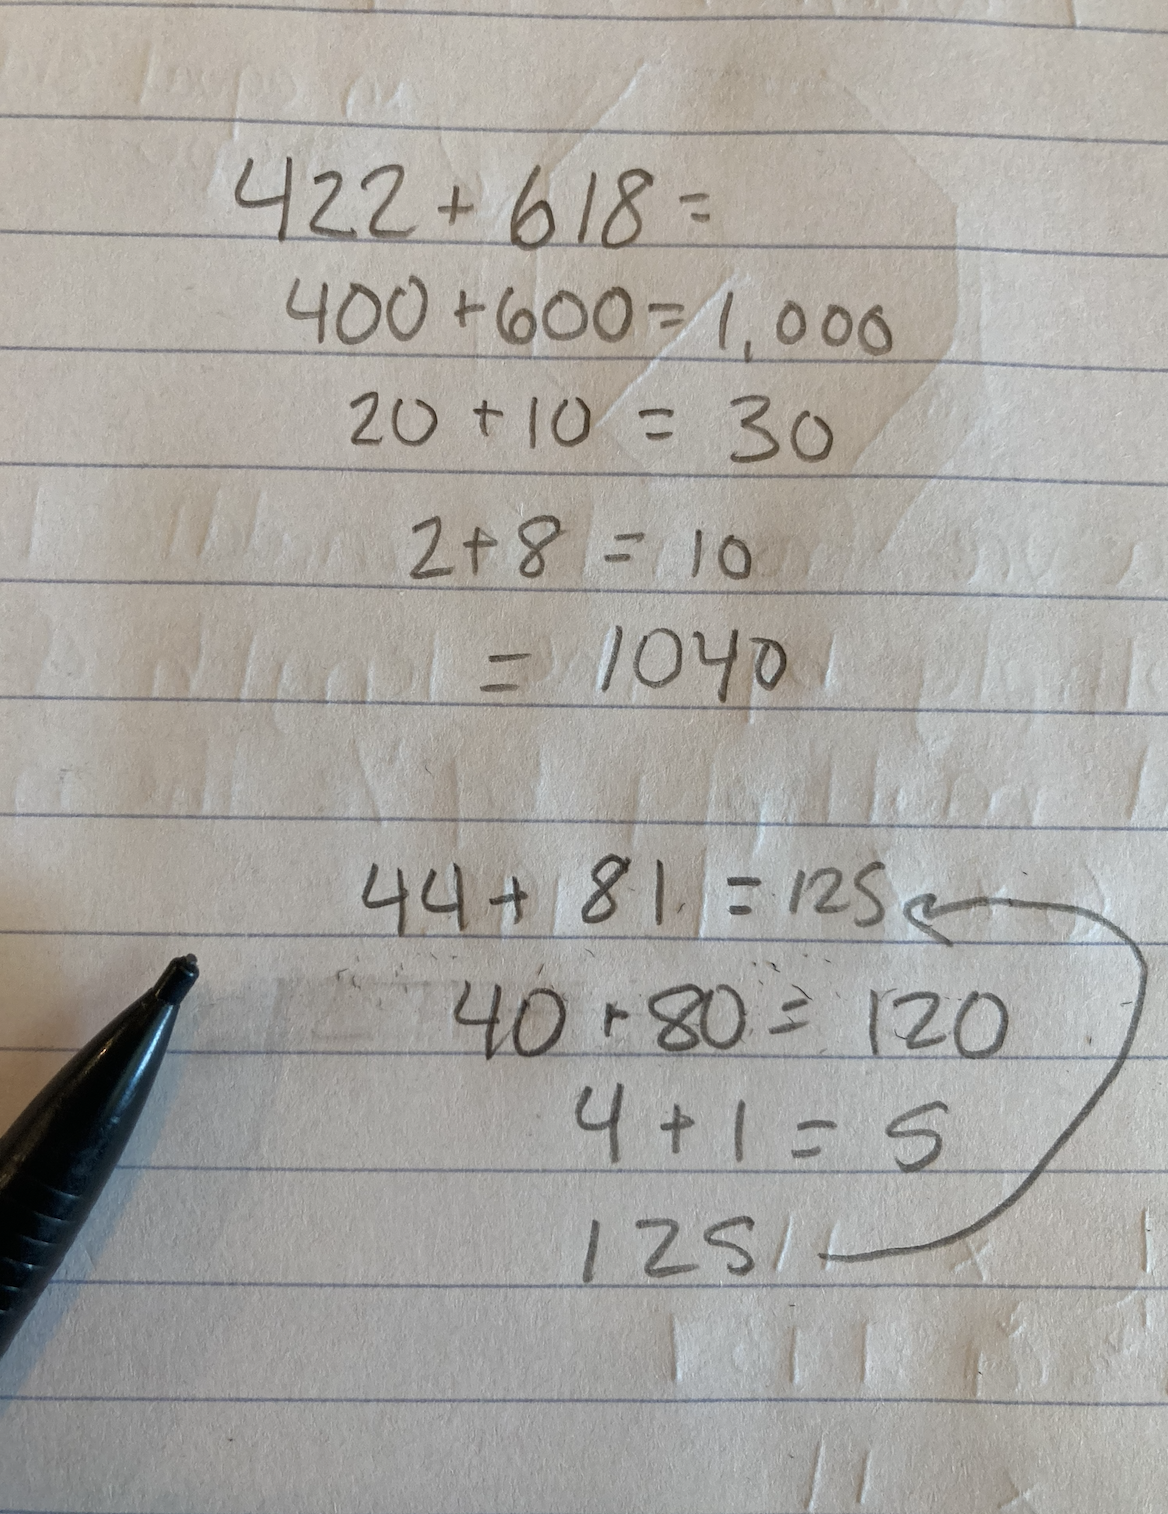 422 + 618 =
400 + 600 = 1,000
20 + 10 = 30
2 + 8 = 10
= 1040
44 + 81 = 125
40 + 80 = 120
4 + 1 = 5
125